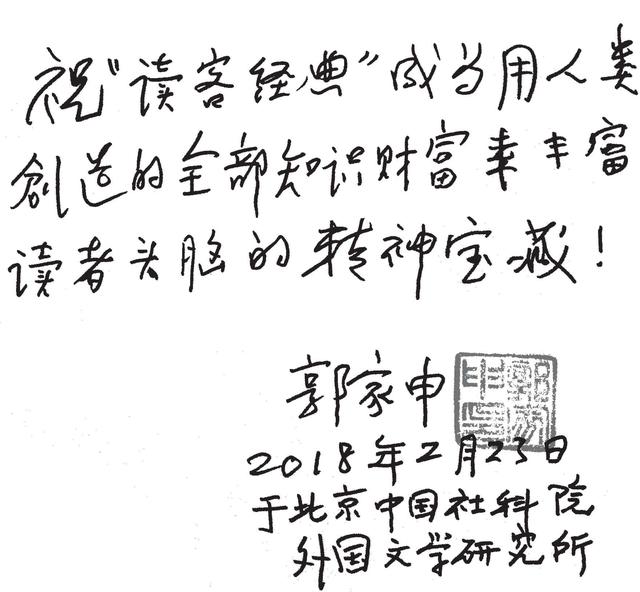 祝“读客经典”成为用人类
创造的全部知识财富来丰富
读者头脑的精神宝藏!
郭家申
2018年2月23日
于北京中国社科院
外国文学研究所